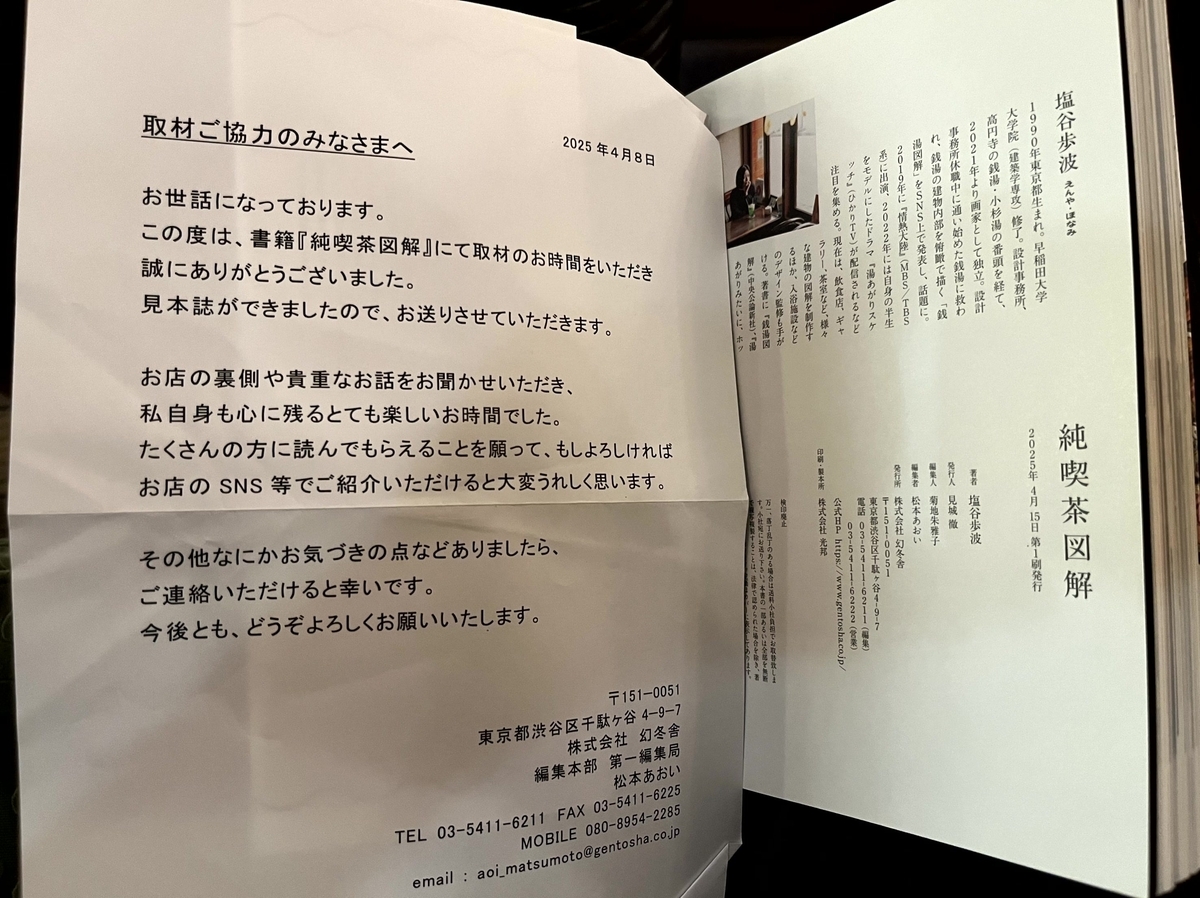 取材ご協力のみなさまへ
2025年4月8日
お世話になっております。
この度は、書籍『純喫茶図解』にて取材のお時間をいただき
誠にありがとうございました。
見本誌ができましたので、お送りさせていただきます。
お店の裏側や貴重なお話をお聞かせいただき、
私自身も心に残るとても楽しいお時間でした。
たくさんの方に読んでもらえることを願って、もしよろしければ
お店の SNS 等でご紹介いただけると大変うれしく思います。
その他なにかお気づきの点などありましたら、
ご連絡いただけると幸いです。
今後とも、どうぞよろしくお願いいたします。
〒151-0051
東京都渋谷区千駄ヶ谷 4-9-7
株式会社 幻冬舎
編集本部 第一編集局
松本あおい
TEL 03-5411-6211 FAX 03-5411-6225
MOBILE 080-8954-2285
email : aoi_matsumoto@gentosha.co.jp
塩谷歩波 えんや・ほなみ
1990年東京都生まれ。早稲田大学
大学院（建築学専攻）修了。設計事務所、
高円寺の銭湯・小杉湯の番頭を経て、
2021年より画家として独立。設計
事務所休職中に通い始めた銭湯に救わ
れ、銭湯の建物内部を俯瞰で描く「銭
湯図解」をSNS上で発表し、話題に。
2019年に『情熱大陸』（MBS/TBS
系）に出演、2022年には自身の半生
をモデルにしたドラマ『湯あがりスケ
ッチ』（ひかりTV）が配信されるなど
注目を集める。現在は、飲食店、ギャ
ラリー、茶室など、様々
な建物の図解を制作す
るほか、入浴施設など
のデザイン監修も手が
ける。著書に『銭湯図
解』（中央公論新社）、『湯
あがりみたいに、ホッ
純喫茶図解
2025年4月15日 第1刷発行
著者 塩谷歩波
発行人 見城 徹
編集人 菊地朱雅子
編集者 松本あおい
発行所 株式会社 幻冬舎
〒151-0051
東京都渋谷区千駄ヶ谷4-9-7
電話 03-5411-6211（編集）
03-5411-6222（営業）
公式HP https://www.gentosha.co.jp/
印刷・製本所 株式会社 光邦
検印廃止
万一、落丁乱丁のある場合は送料小社負担でお取替致しま
す。小社宛にお送り下さい。本書の一部あるいは全部を無断